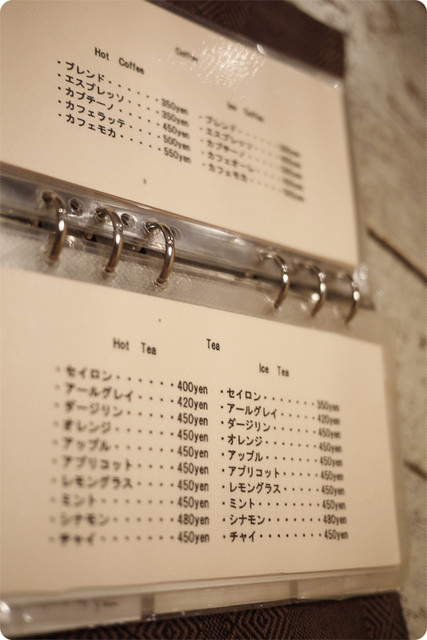 Coffee
Hot Coffee
・ブレンド・・・・・・350yen
・エスプレッソ・・・・350yen
・カプチーノ・・・・・450yen
・カフェラッテ・・・・500yen
・カフェモカ・・・・・550yen
Coffee
・ブレンド
・エスプレッソ
・カプチーノ
・カフェオーレ
・カフェモカ
Tea
Hot Tea
・セイロン・・・・・・400yen
・アールグレイ・・・・420yen
・ダージリン・・・・・450yen
・オレンジ・・・・・・450yen
・アップル・・・・・・450yen
・アプリコット・・・・450yen
・レモングラス・・・・450yen
・ミント・・・・・・・450yen
・シナモン・・・・・・480yen
・チャイ・・・・・・・450yen
Ice Tea
・セイロン・・・・・・350yen
・アールグレイ・・・・420yen
・ダージリン・・・・・450yen
・オレンジ・・・・・・450yen
・アップル・・・・・・450yen
・アプリコット・・・・450yen
・レモングラス・・・・450yen
・ミント・・・・・・・450yen
・シナモン・・・・・・480yen
・チャイ・・・・・・・450yen